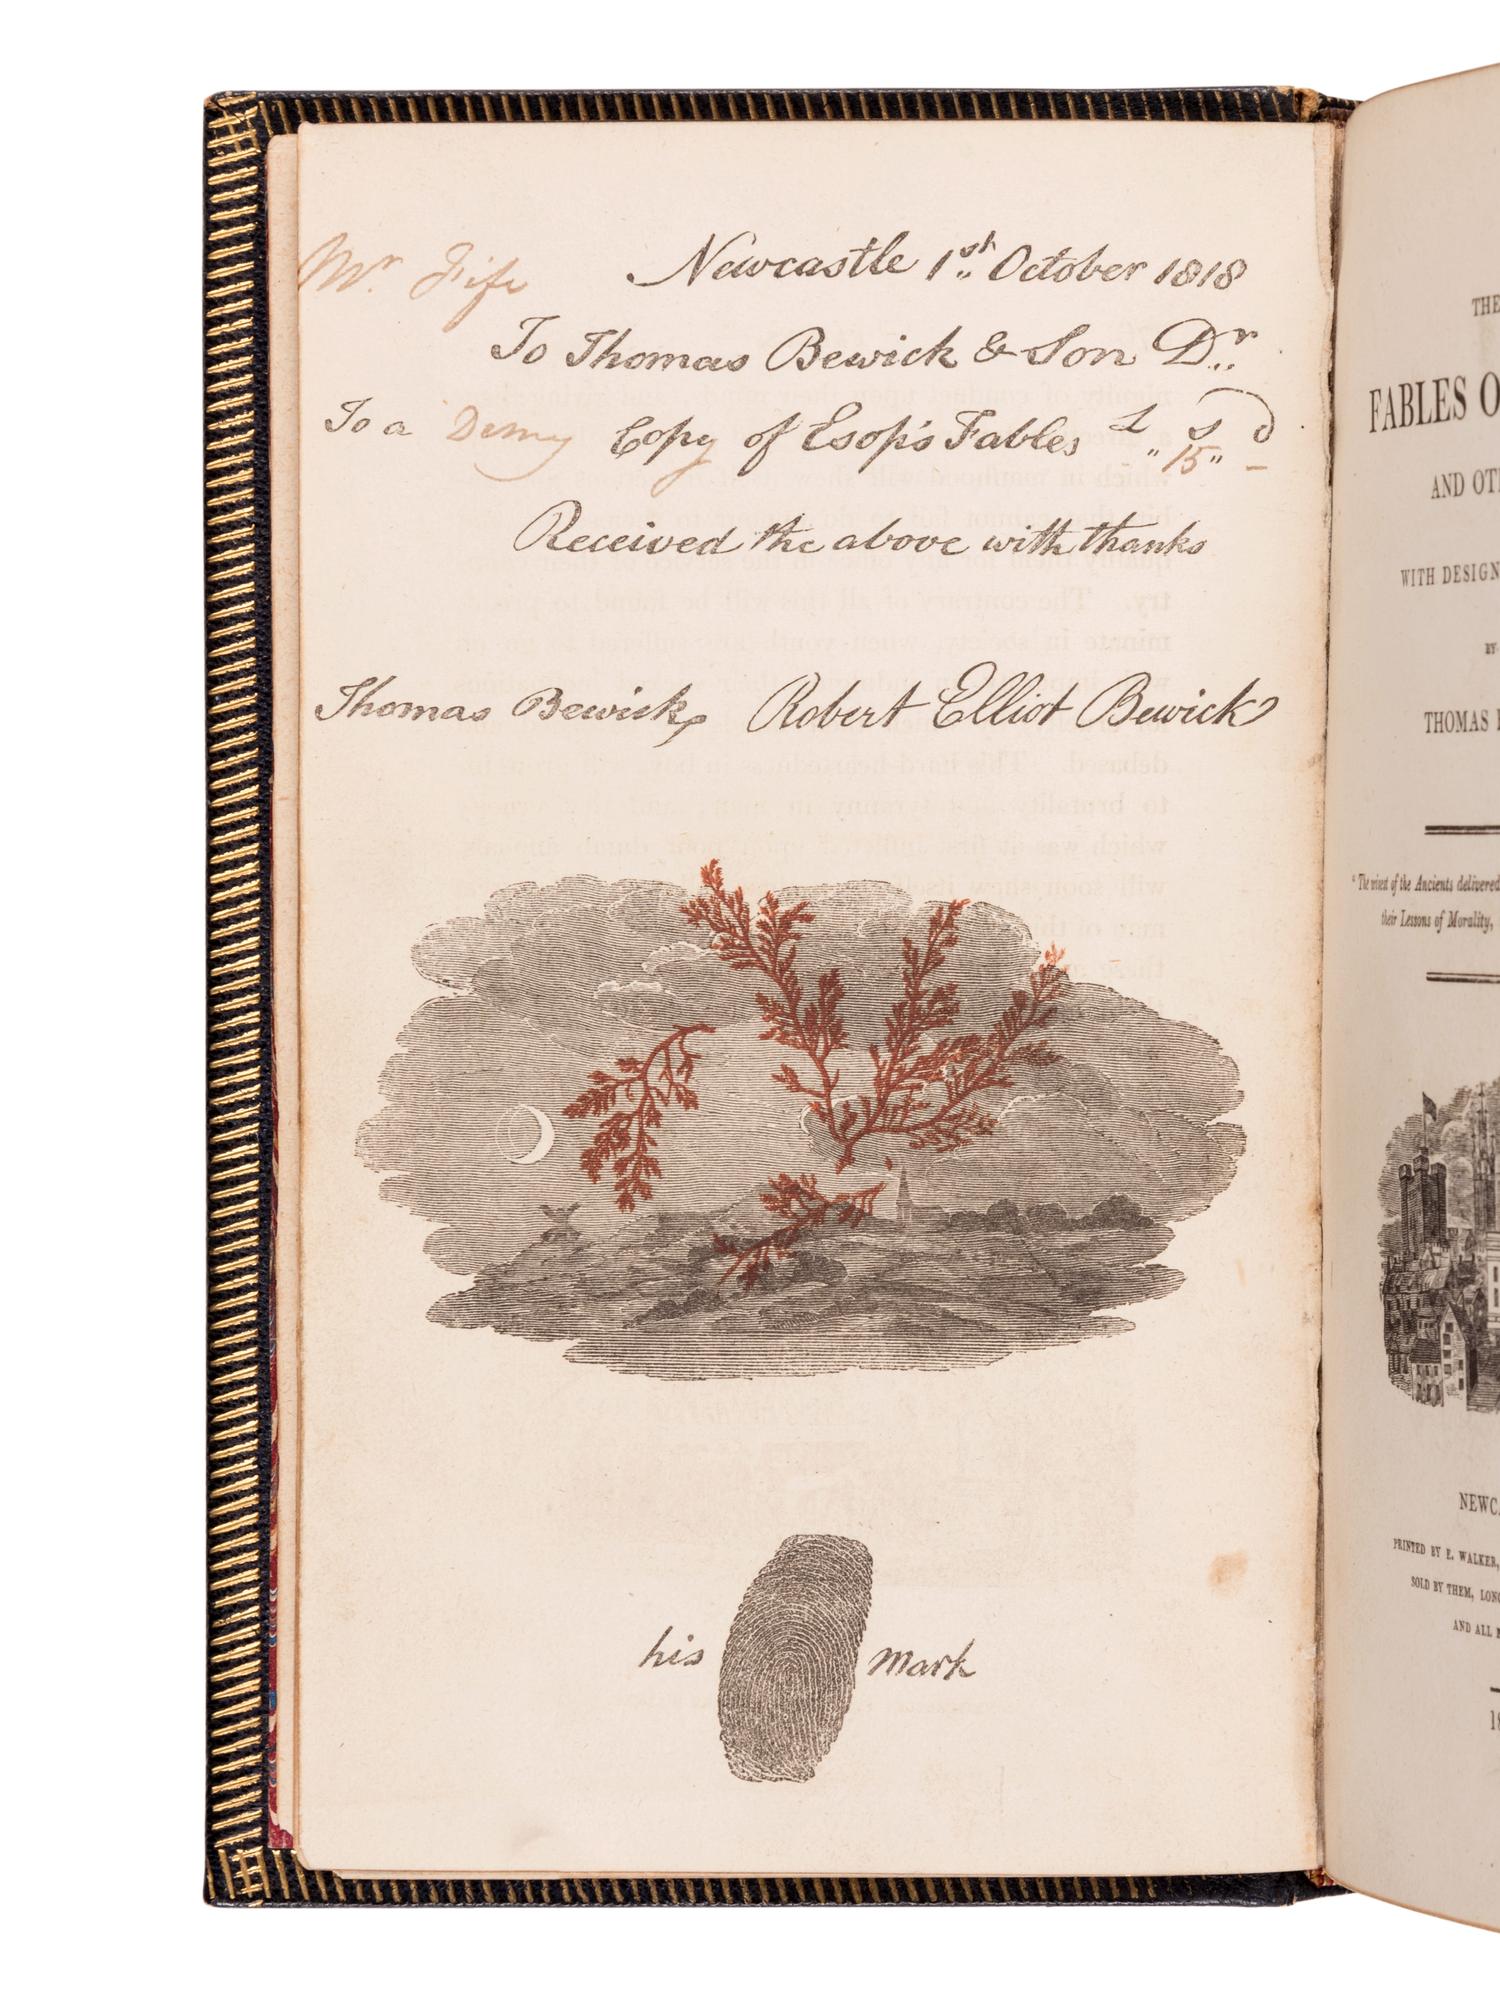 Mr. Fife
Newcastle 1st October 1818
To Thomas Bewick & Son Dr.
To a Demy Copy of Esop's Fables £ s d
" 15 " –
Received the above with thanks
Thomas Bewick Robert Elliot Bewick
his mark
THE
FABLES O
AND OT
WITH DESIGN
BY
THOMAS
"The wisest of the Ancients delivered
their Lessons of Morality,
NEWC
PRINTED BY E. WALKER,
SOLD BY THEM, LON
AND ALL